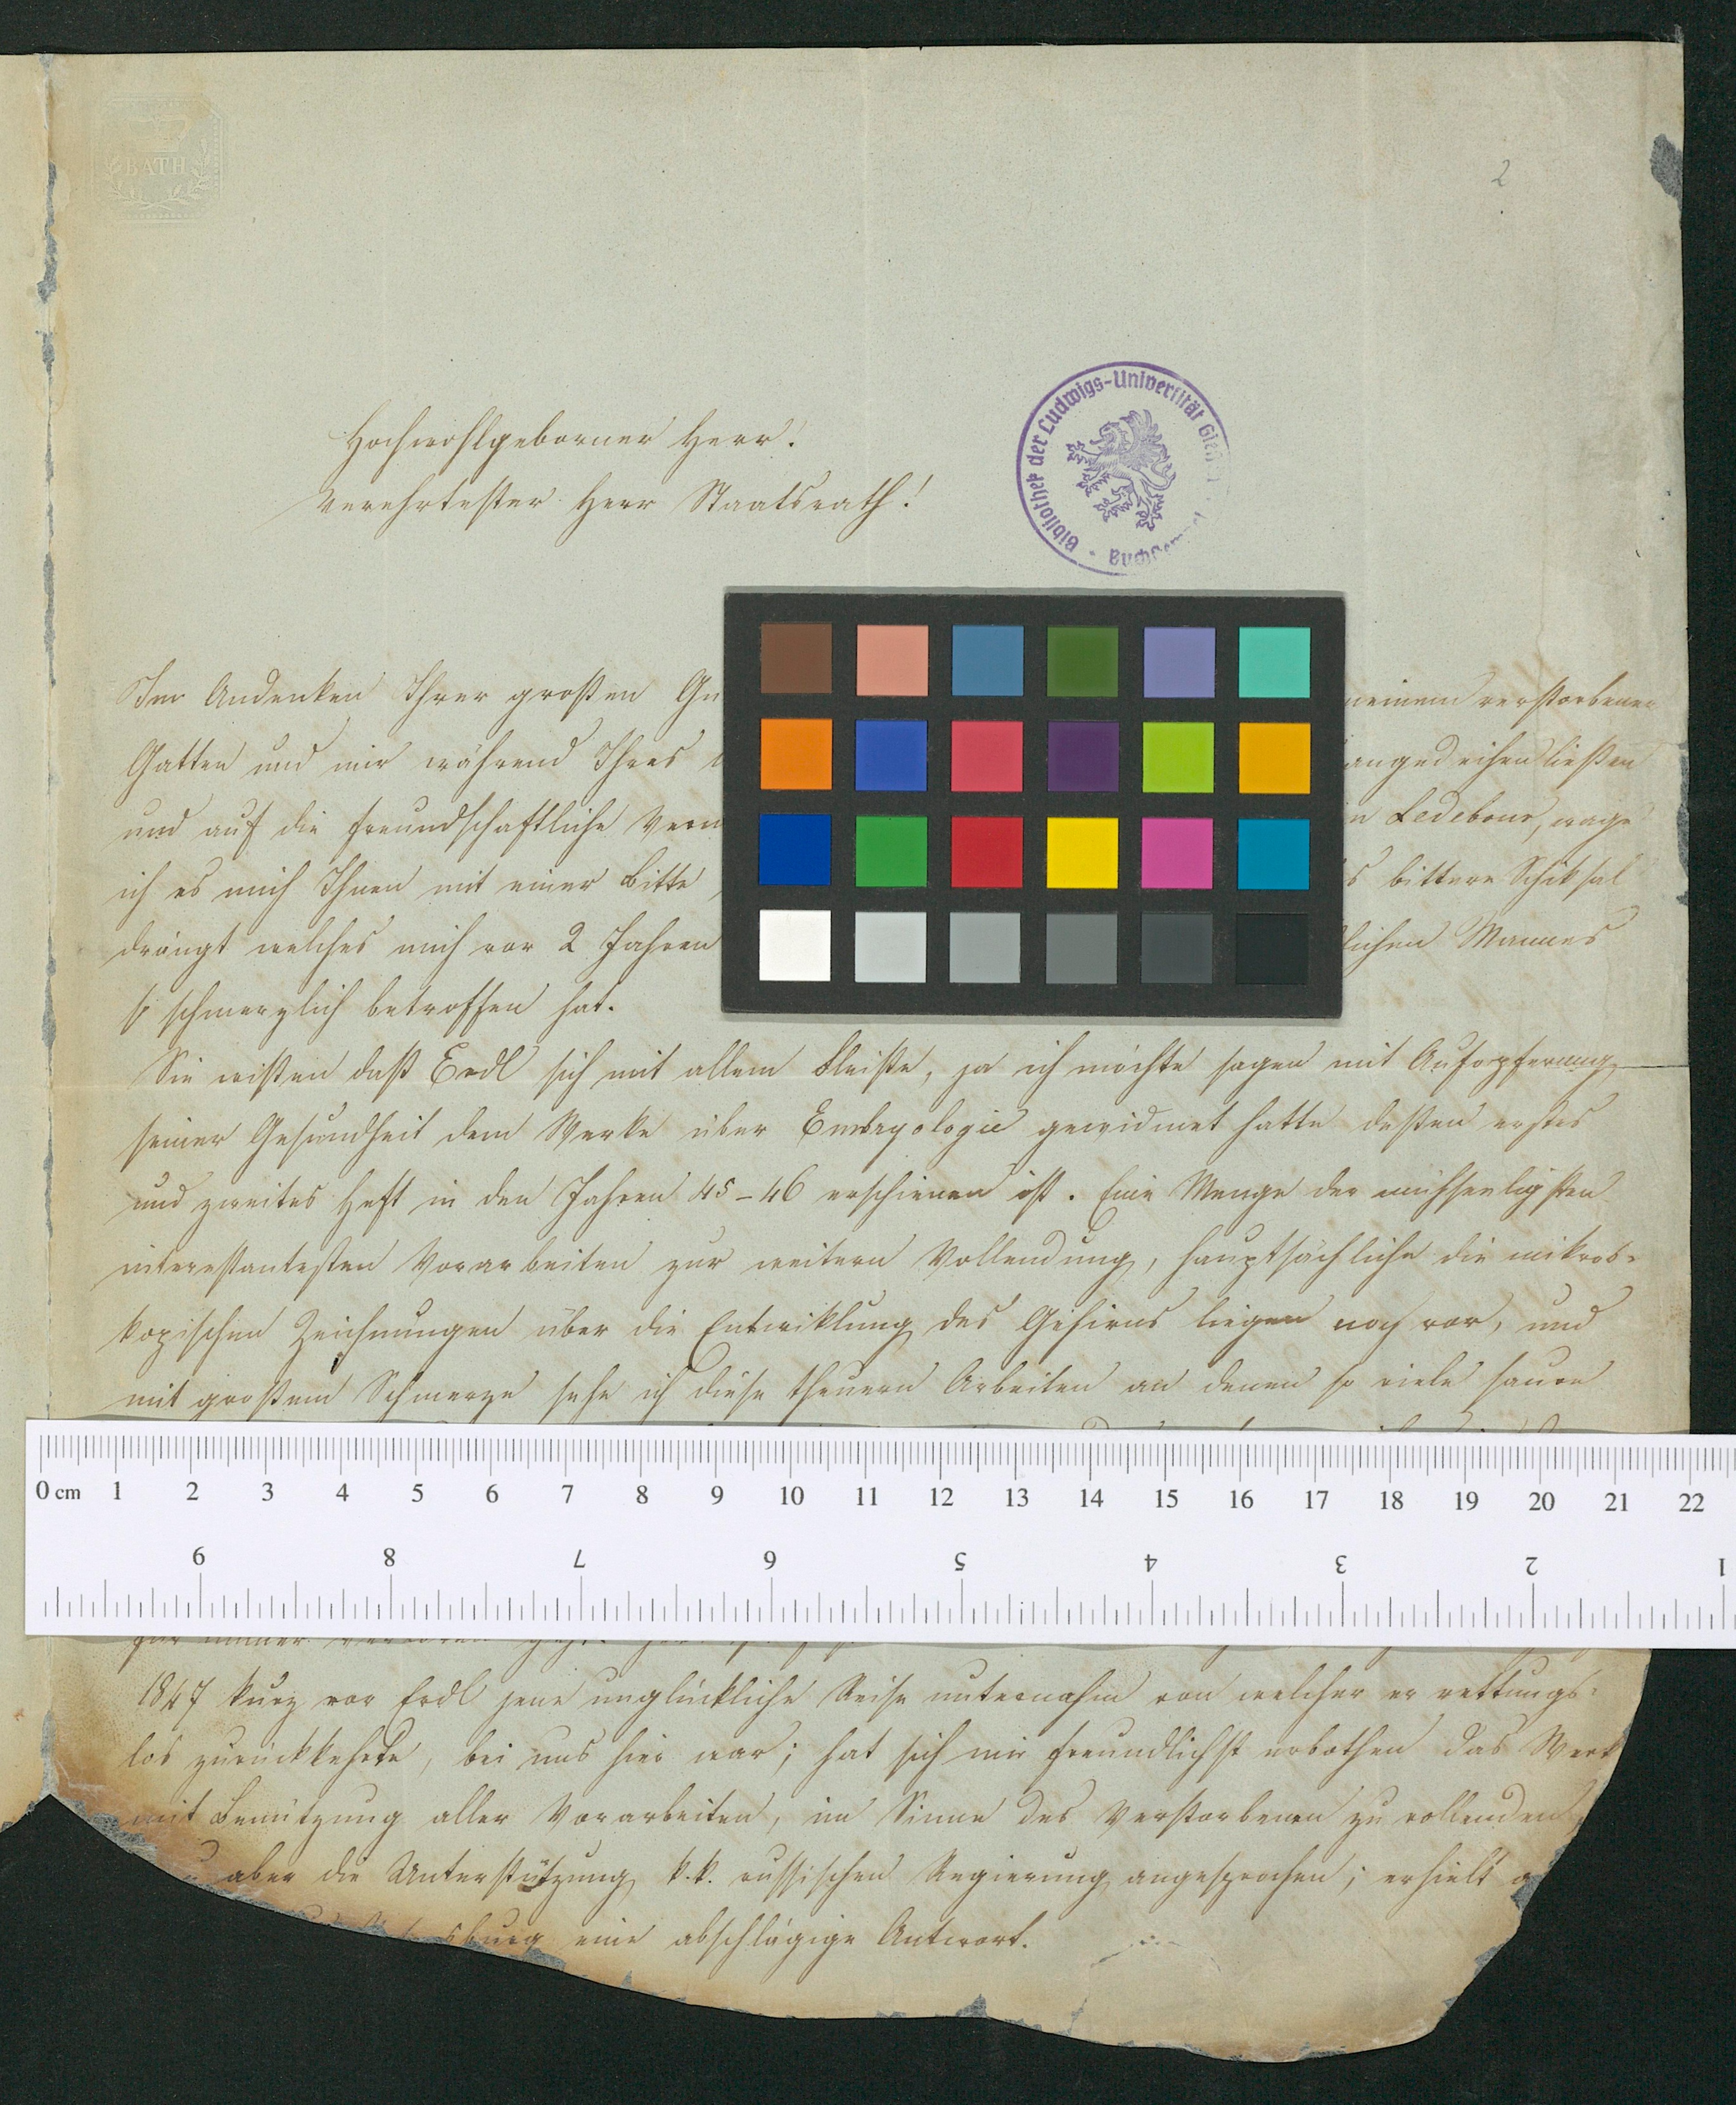 BATH
2
Bibliothek der Ludwigs-Universität Gieß
Hochwohlgeborner Herr!
Verehrtester Herr Staatsrath!
Im Andenken Ihrer großen meinem verstorbenen
Gatten und mir während Ihres angedeihen ließen
und auf die freundschaftliche Ledebour, wage
ich es mich Ihnen mit einer Bitte bittere Schiksal
drängt welches mich vor 2 Jahren Mannes
so schmerzlich betroffen hat.
Sie wißen daß Erdl sich mit allem Fleiße, ja ich möchte sagen mit Aufopferung
seiner Gesundheit dem Werke über Embryologie gewidmet hatte deßen erstes
und zweites Heft in den Jahren 45–46 erschienen ist. Eine Menge der mühseeligsten
interessantesten Vorarbeiten zur weitern Vollendung, hauptsächliche die mikros-
kopischen Zeichnungen über die Entwiklung des Gehirns liegen noch vor, und
mit großem Schmerze sehe ich diese theuern Arbeiten an denen so viele saure
0 cm 1 2 3 4 5 6 7 8 9 10 11 12 13 14 15 16 17 18 19 20 21 22
9 8 7 6 5 4 3 2 1
für immer verloren
1847 kurz vor Erdl jene unglückliche Reise unternahm von welcher er rettungs-
los zurückkehrte, bei uns hier war; hat sich mir freundlichst erbothen das Werk
mit Benützung aller Vorarbeiten, im Sinne des Verstorbenen zu vollenden,
aber die Unterstützung k.k. russischen Regierung angesprochen; erhielt
eine abschlägige Antwort.